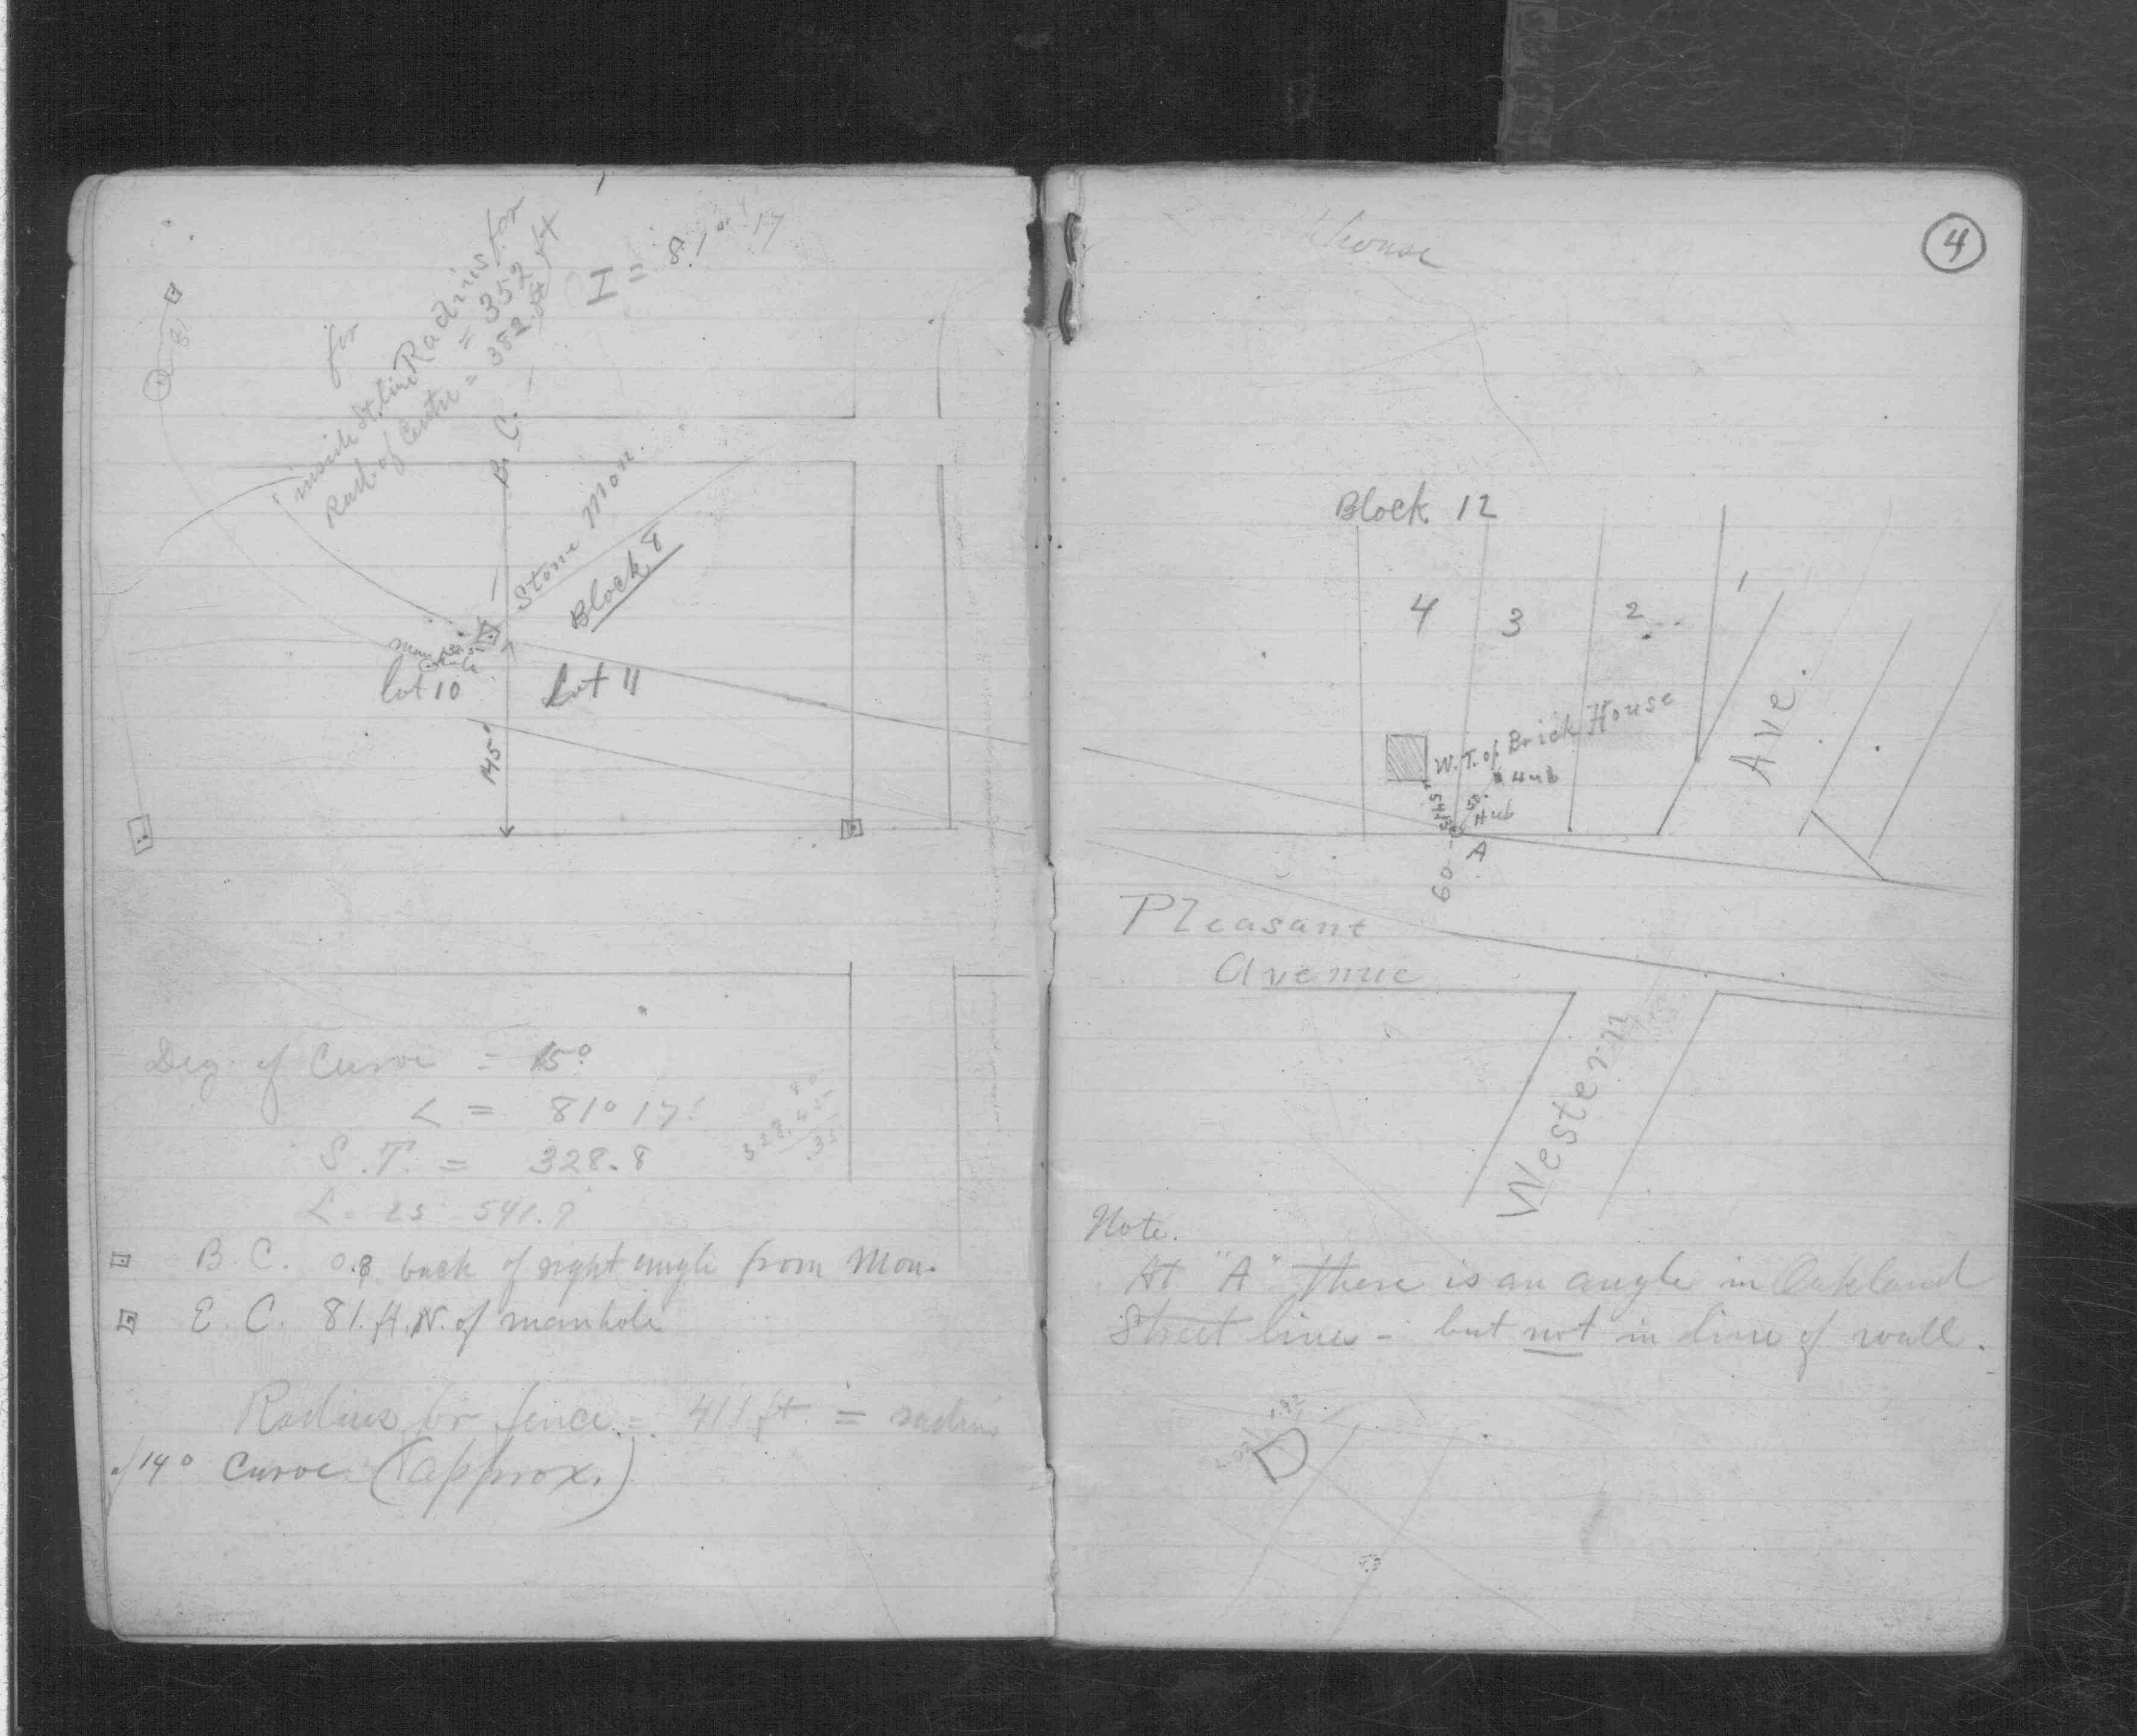 for
Radius for
inside St. line = 352
Rad. of Centre = 382 ft
I = 81° 17
81
B. C.
Stone Mon.
Block 8
manhole
Lot 10
Lot 11
145
Deg. of Curve = 15°
∠ = 81° 17'
S. T. = 328.8
B. C. 0.8 back of right angle from Mon.
E. C. 81. ft. N. of manhole
Radius for fence = 411 ft. = radius
of 14° Curve (approx.)
4
house
Block 12
4 3 2 1
W. T. of Brick House
Hub
50.
Hub
A
60
Ave.
Pleasant
Avenue
Western
Note.
At "A" there is an angle in Oakland
Street lines - but not in line of wall.
1.92